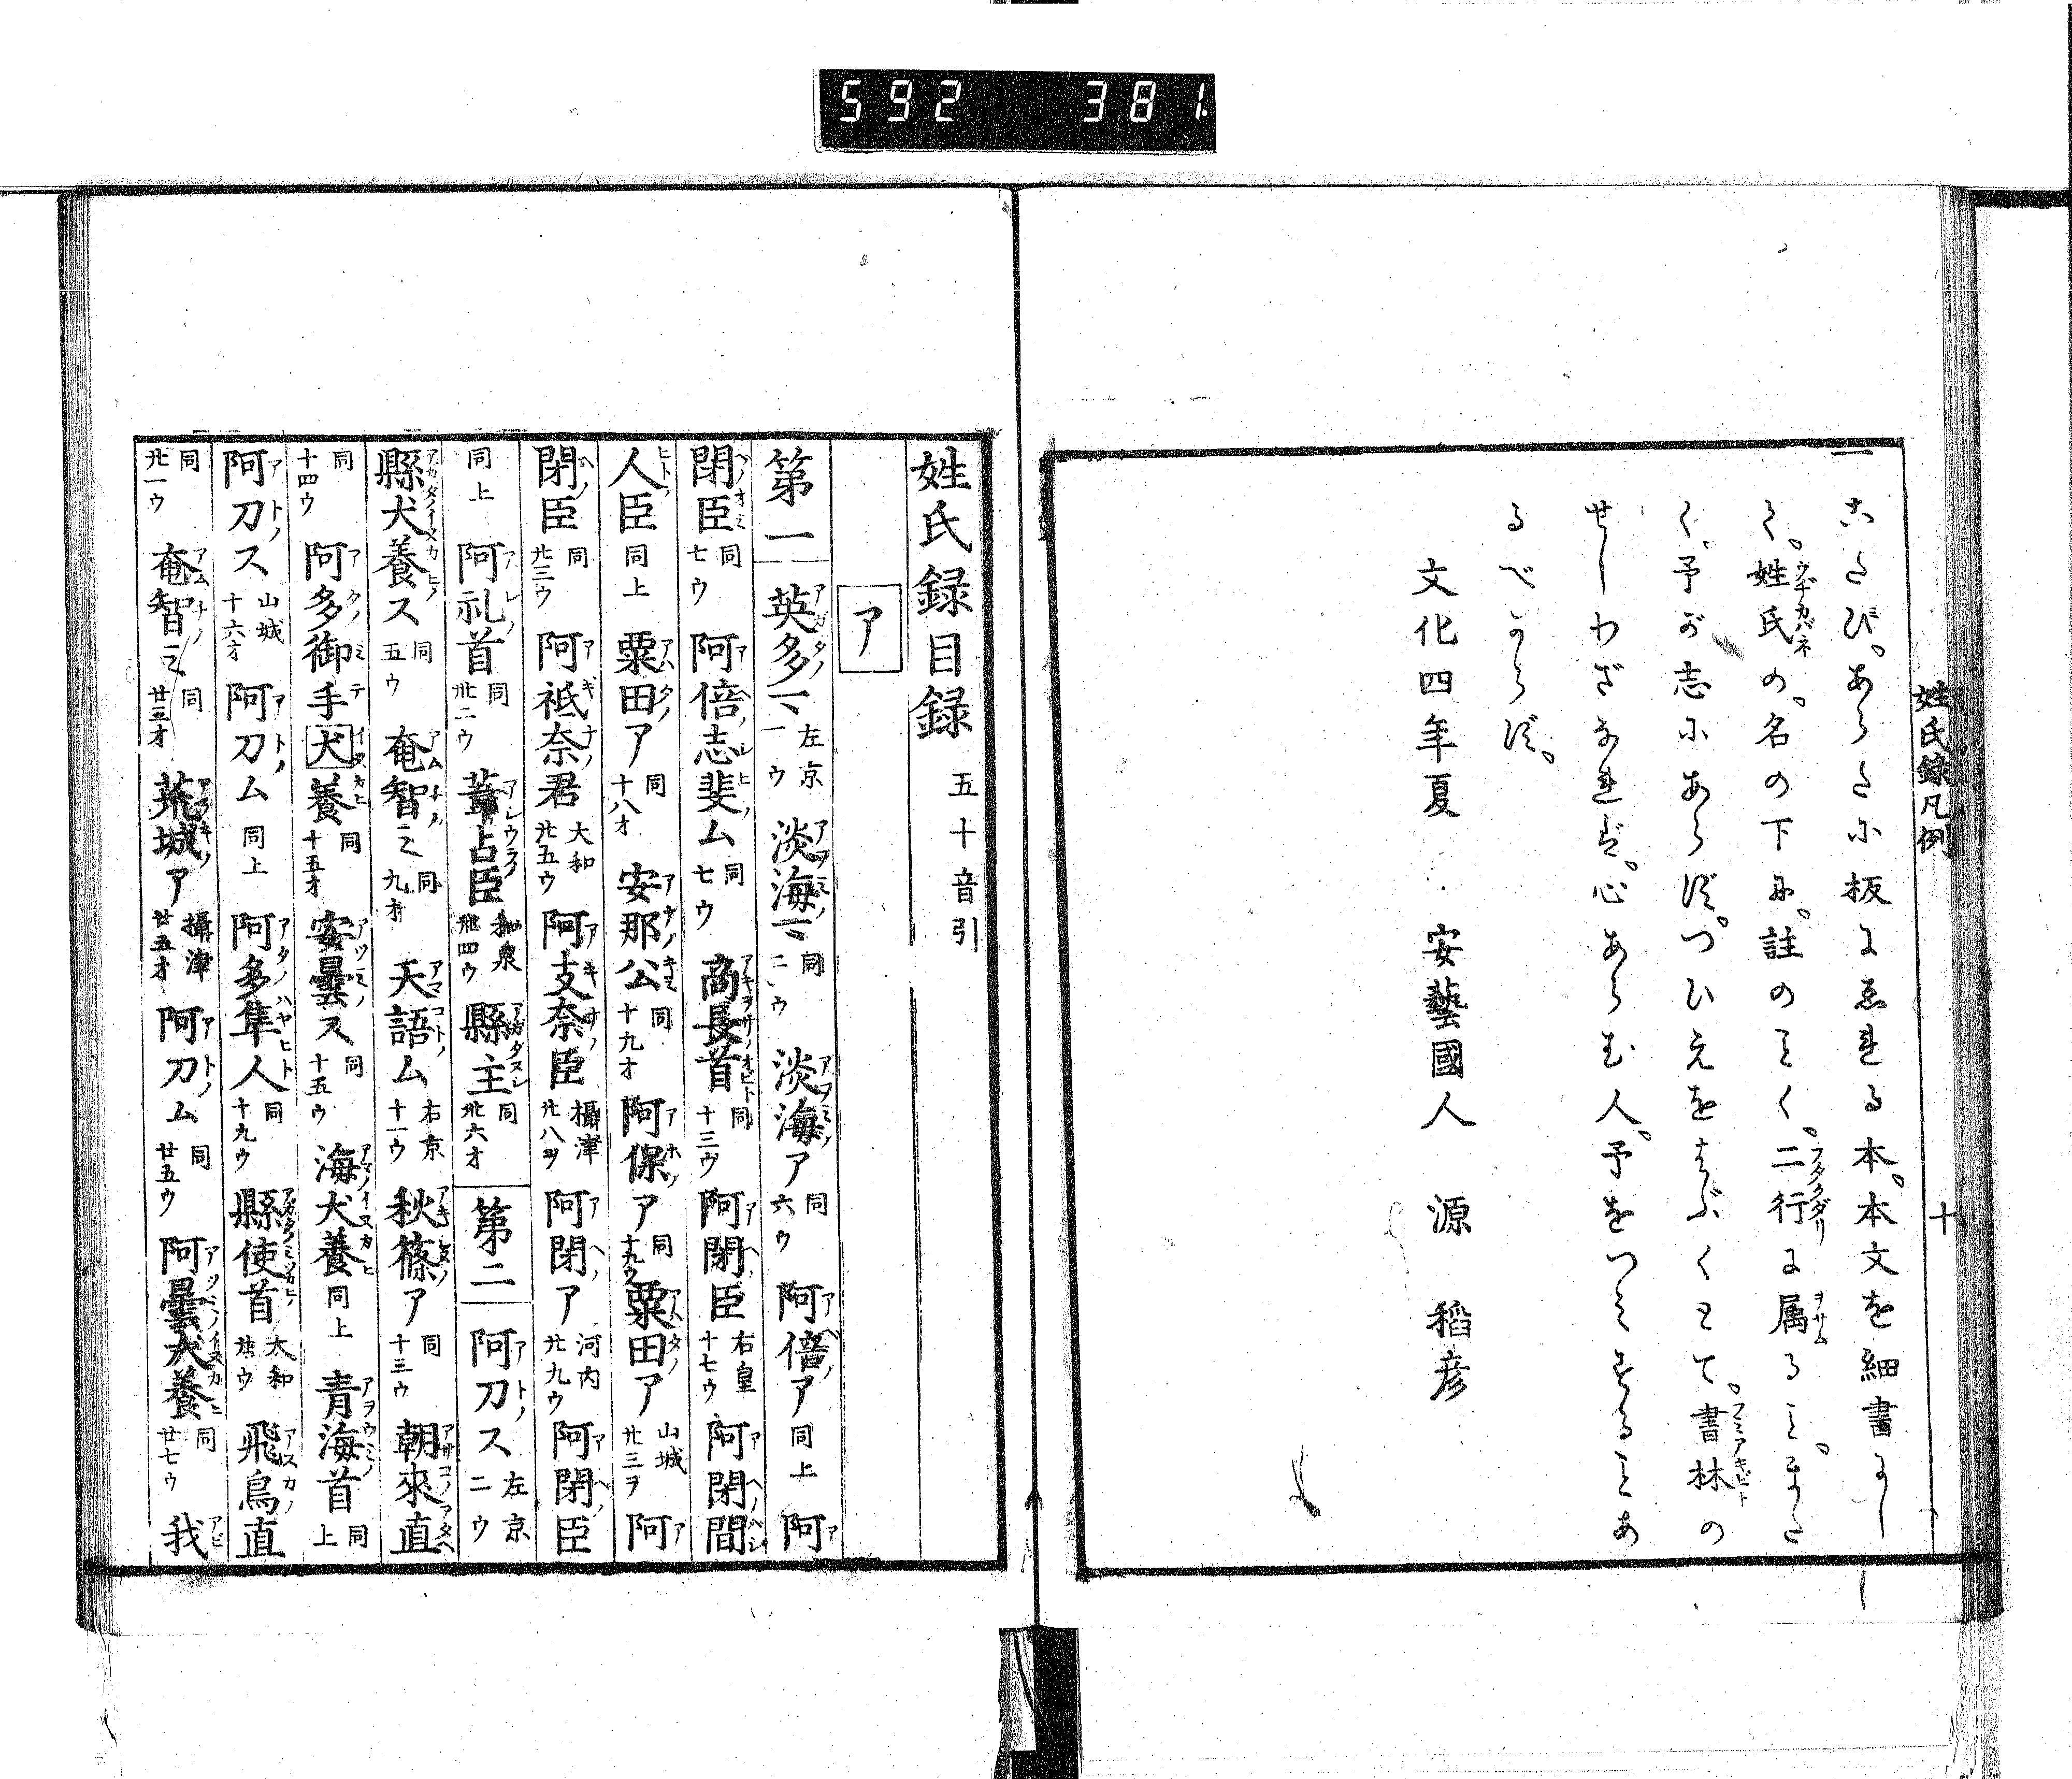 592 381
姓氏錄凡例 十
一 こたび。あらたに板にゑれる本。本文を細書にし
て。姓氏の。名の下に。註のごとく。二行に属ること。またく
予が志にあらず。つひえをはぶくとて。書林の
せしわざなれば。心あらむ人。予をつみすることあ
るべからず。
文化四年夏 安藝國人 源 稻彦
姓氏録目録 五十音引
ア
第一 英多 左京 一ウ 淡海 同 二ウ 淡海ア 同 六ウ 阿倍ア 同上 阿
閉臣 同 七ウ 阿倍志斐ム 同 七ウ 商長首 同 十三ウ 阿閉臣 右皇 十七ウ 阿閉間
人臣 同上 粟田ア 同 十八オ 安那公 同 十九オ 阿保ア 同 十九ウ 粟田ア 山城 卅三ヲ 阿
閉臣 同 卅三ウ 阿祗奈君 大和 卅五ウ 阿支奈臣 攝津 卅八ヲ 阿閉ア 河内 卅九ウ 阿閉臣
同上 阿礼首 同 卌二ウ 葦占臣 和泉 卌四ウ 縣主 同 卌六オ 第二 阿刀ス 左京 二ウ
縣犬養ス 同 五ウ 奄智ミ 同 九オ 天語ム 右京 十一ウ 秋篠ア 同 十三ウ 朝來直
同 十四ウ 阿多御手犬養 同 十五オ 安曇ス 同 十五ウ 海犬養 同上 青海首 同上
阿刀ス 山城 十六オ 阿刀ム 同上 阿多隼人 同 十九ウ 縣使首 大和 廿ウ 飛鳥直
同 廿一ウ 奄智ミ 同 廿三オ 荒城ア 攝津 廿五オ 阿刀ム 同 廿五ウ 阿曇犬養 同 廿七ウ 我